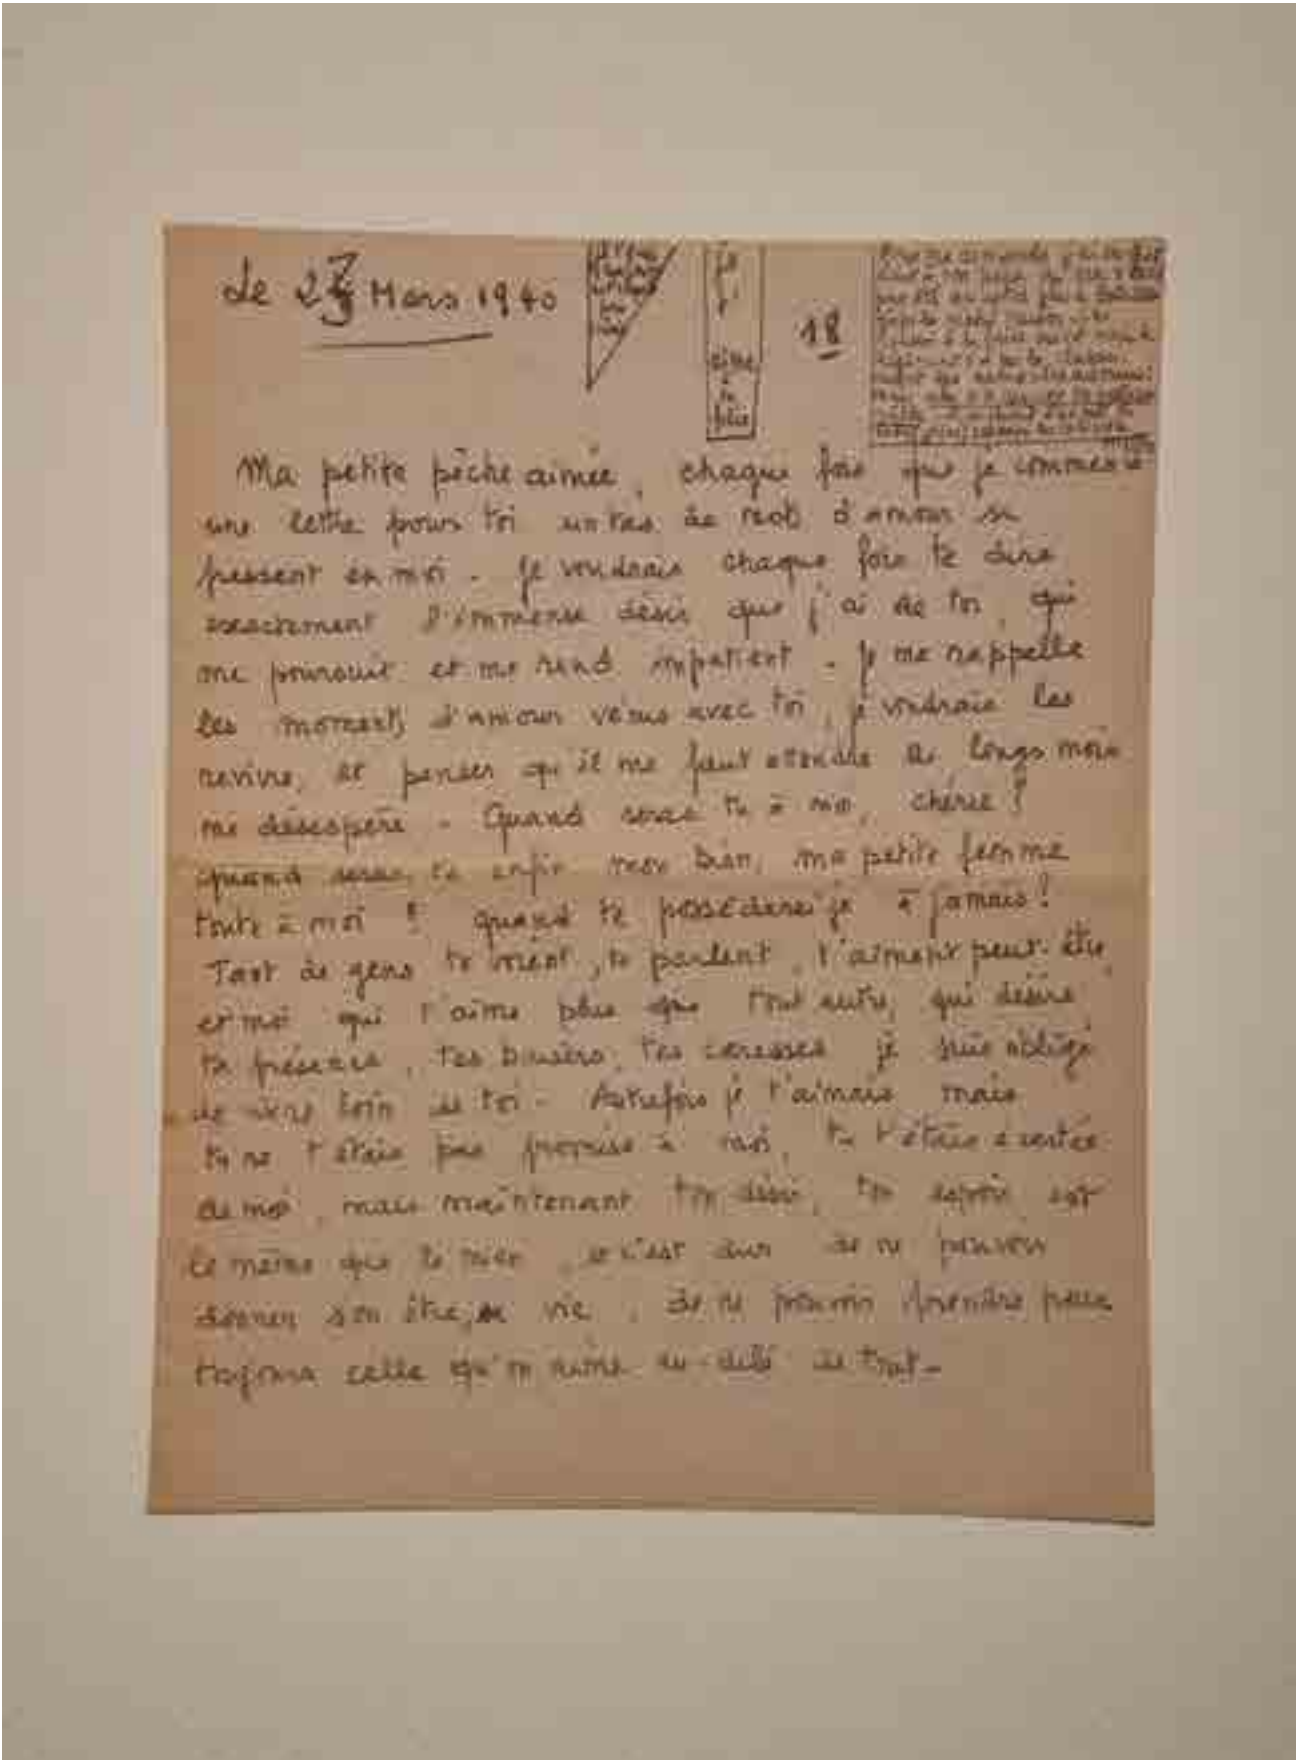 Le 27 Mars 1940
je
t'
aime
à
la
folie
18
Ma petite pêche aimée, chaque fois que je commence
une lettre pour toi un tas de mots d'amour se
pressent en moi - Je voudrais chaque fois te dire
exactement l'immense désir que j'ai de toi, qui
me poursuit et me rend impatient - Je me rappelle
les moments d'amour vécus avec toi, je voudrais les
revivre, et penser qu'il me faut attendre de longs mois
me désespère - Quand seras tu à moi, chérie !
quand seras tu enfin mon bien, ma petite femme
toute à moi ! quand te possèderai je à jamais !
Tant de gens te voient, te parlent, t'aiment peut-être,
et moi qui t'aime plus que tout autre, qui désire
ta présence, tes baisers, tes caresses je suis obligé
de vivre loin de toi - Autrefois je t'aimais mais
tu ne t'étais pas promise à moi, tu t'étais écartée
de moi, mais maintenant ton désir, ton espoir est
le même que le mien, et c'est dur de ne pouvoir
donner son être, sa vie, de ne pouvoir prendre pour
toujours celle qu'on aime au-delà de tout -